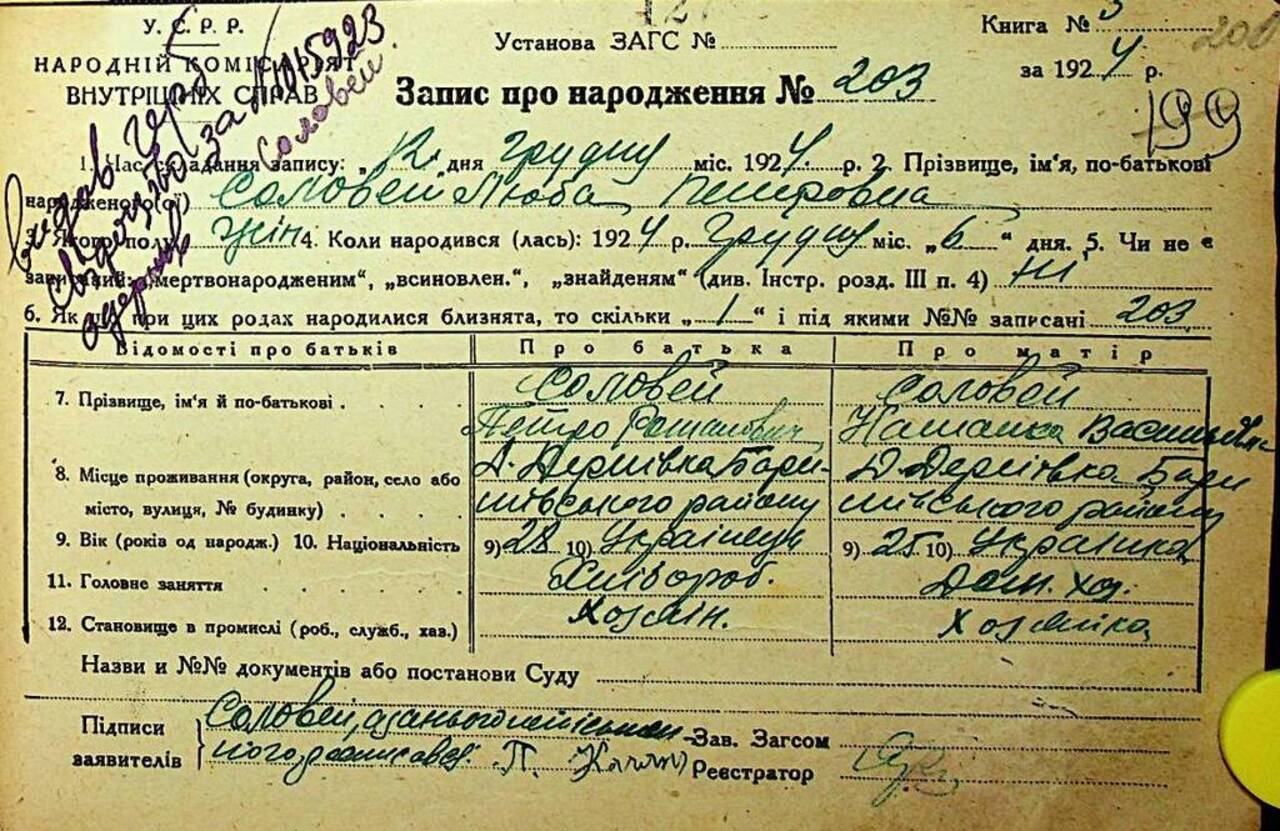 У.С.Р.Р.
НАРОДНІЙ КОМІСАРІЯТ
ВНУТРІШНІХ СПРАВ
Установа ЗАГС №
Книга № 3
200
за 1924 р.
199
Запис про народження № 203
Соловей
1. Час складання запису: „12" дня Грудня міс. 1924 р. 2. Прізвище, ім'я, по-батькові
народженого(ої) Соловей Люба Петровна
3. Якого полу Жін 4. Коли народився (лась): 1924 р. Грудня міс. „6" дня. 5. Чи не є
записаний: „мертвонародженим", „всиновлен.", „знайденям" (див. Інстр. розд. III п. 4) Ні
6. Як що при цих родах народилися близнята, то скільки „1" і під якими №№ записані 203
Відомості про батьків
Про батька
Про матір
7. Прізвище, ім'я й по-батькові
Соловей
Петро Романович
Соловей
Наталка Васильівна
8. Місце проживання (округа, район, село або
місто, вулиця, № будинку)
Бари-
шівського району
Бари
шівського району
9. Вік (років од народж.) 10. Національність
9) 28 10) Українець
9) 25 10) Українка
11. Головне заняття
Хлібороб.
Дом. хоз.
12. Становище в промислі (роб., служб., хаз.)
Хозяін.
Хозяйка
Назви и №№ документів або постанови Суду
Підписи
заявителів
Соловей, а за нього
Зав. Загсом
Реєстратор